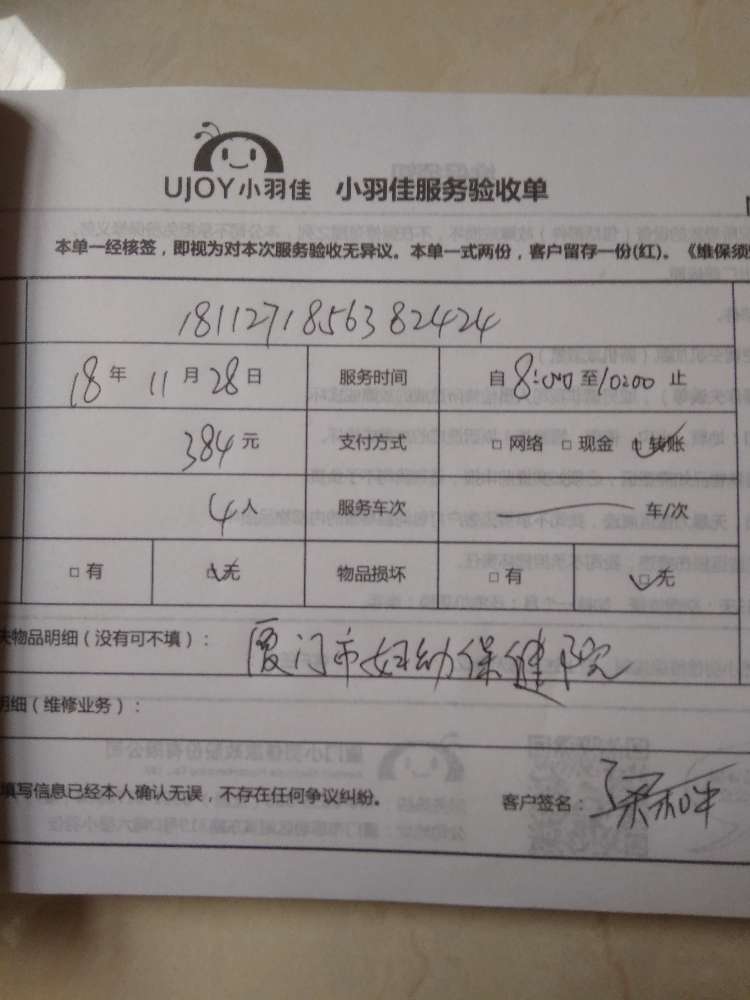 UJOY小羽佳 小羽佳服务验收单
本单一经核签，即视为对本次服务验收无异议。本单一式两份，客户留存一份(红)。《维保须
181127185638 2424
18年 11月28日 服务时间 自8:00至10:00止
384元 支付方式 □网络 □现金 □转账
4人 服务车次 车/次
□有 □无 物品损坏 □有 □无
物品明细（没有可不填）： 厦门市妇幼保健院
明细（维修业务）：
填写信息已经本人确认无误，不存在任何争议纠纷。 客户签名：